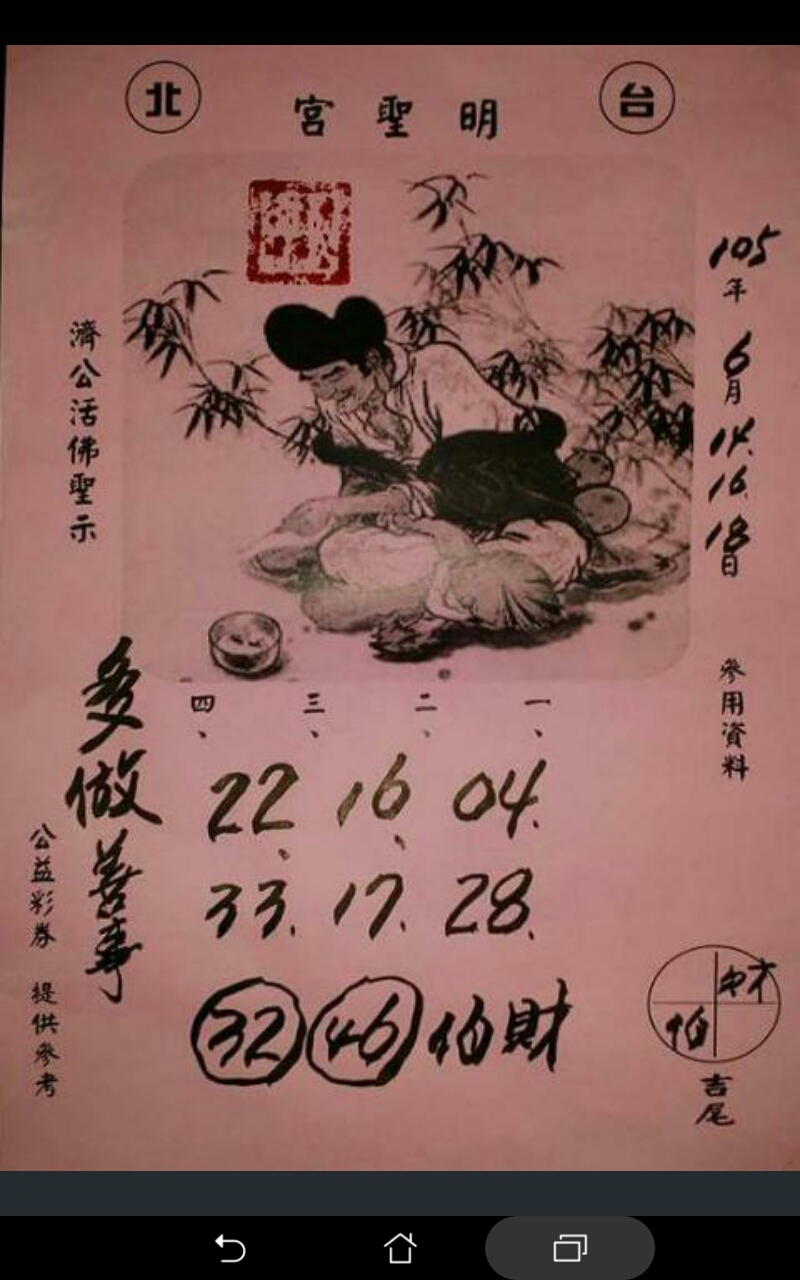 台北
明聖宮
105年6月14.16.18日
參用資料
一、 二、 三、 四、
04. 16、 22、
28. 17. 33.
財伯 46 32
財
伯
吉尾
濟公活佛聖示
多做善事
公益彩券 提供參考